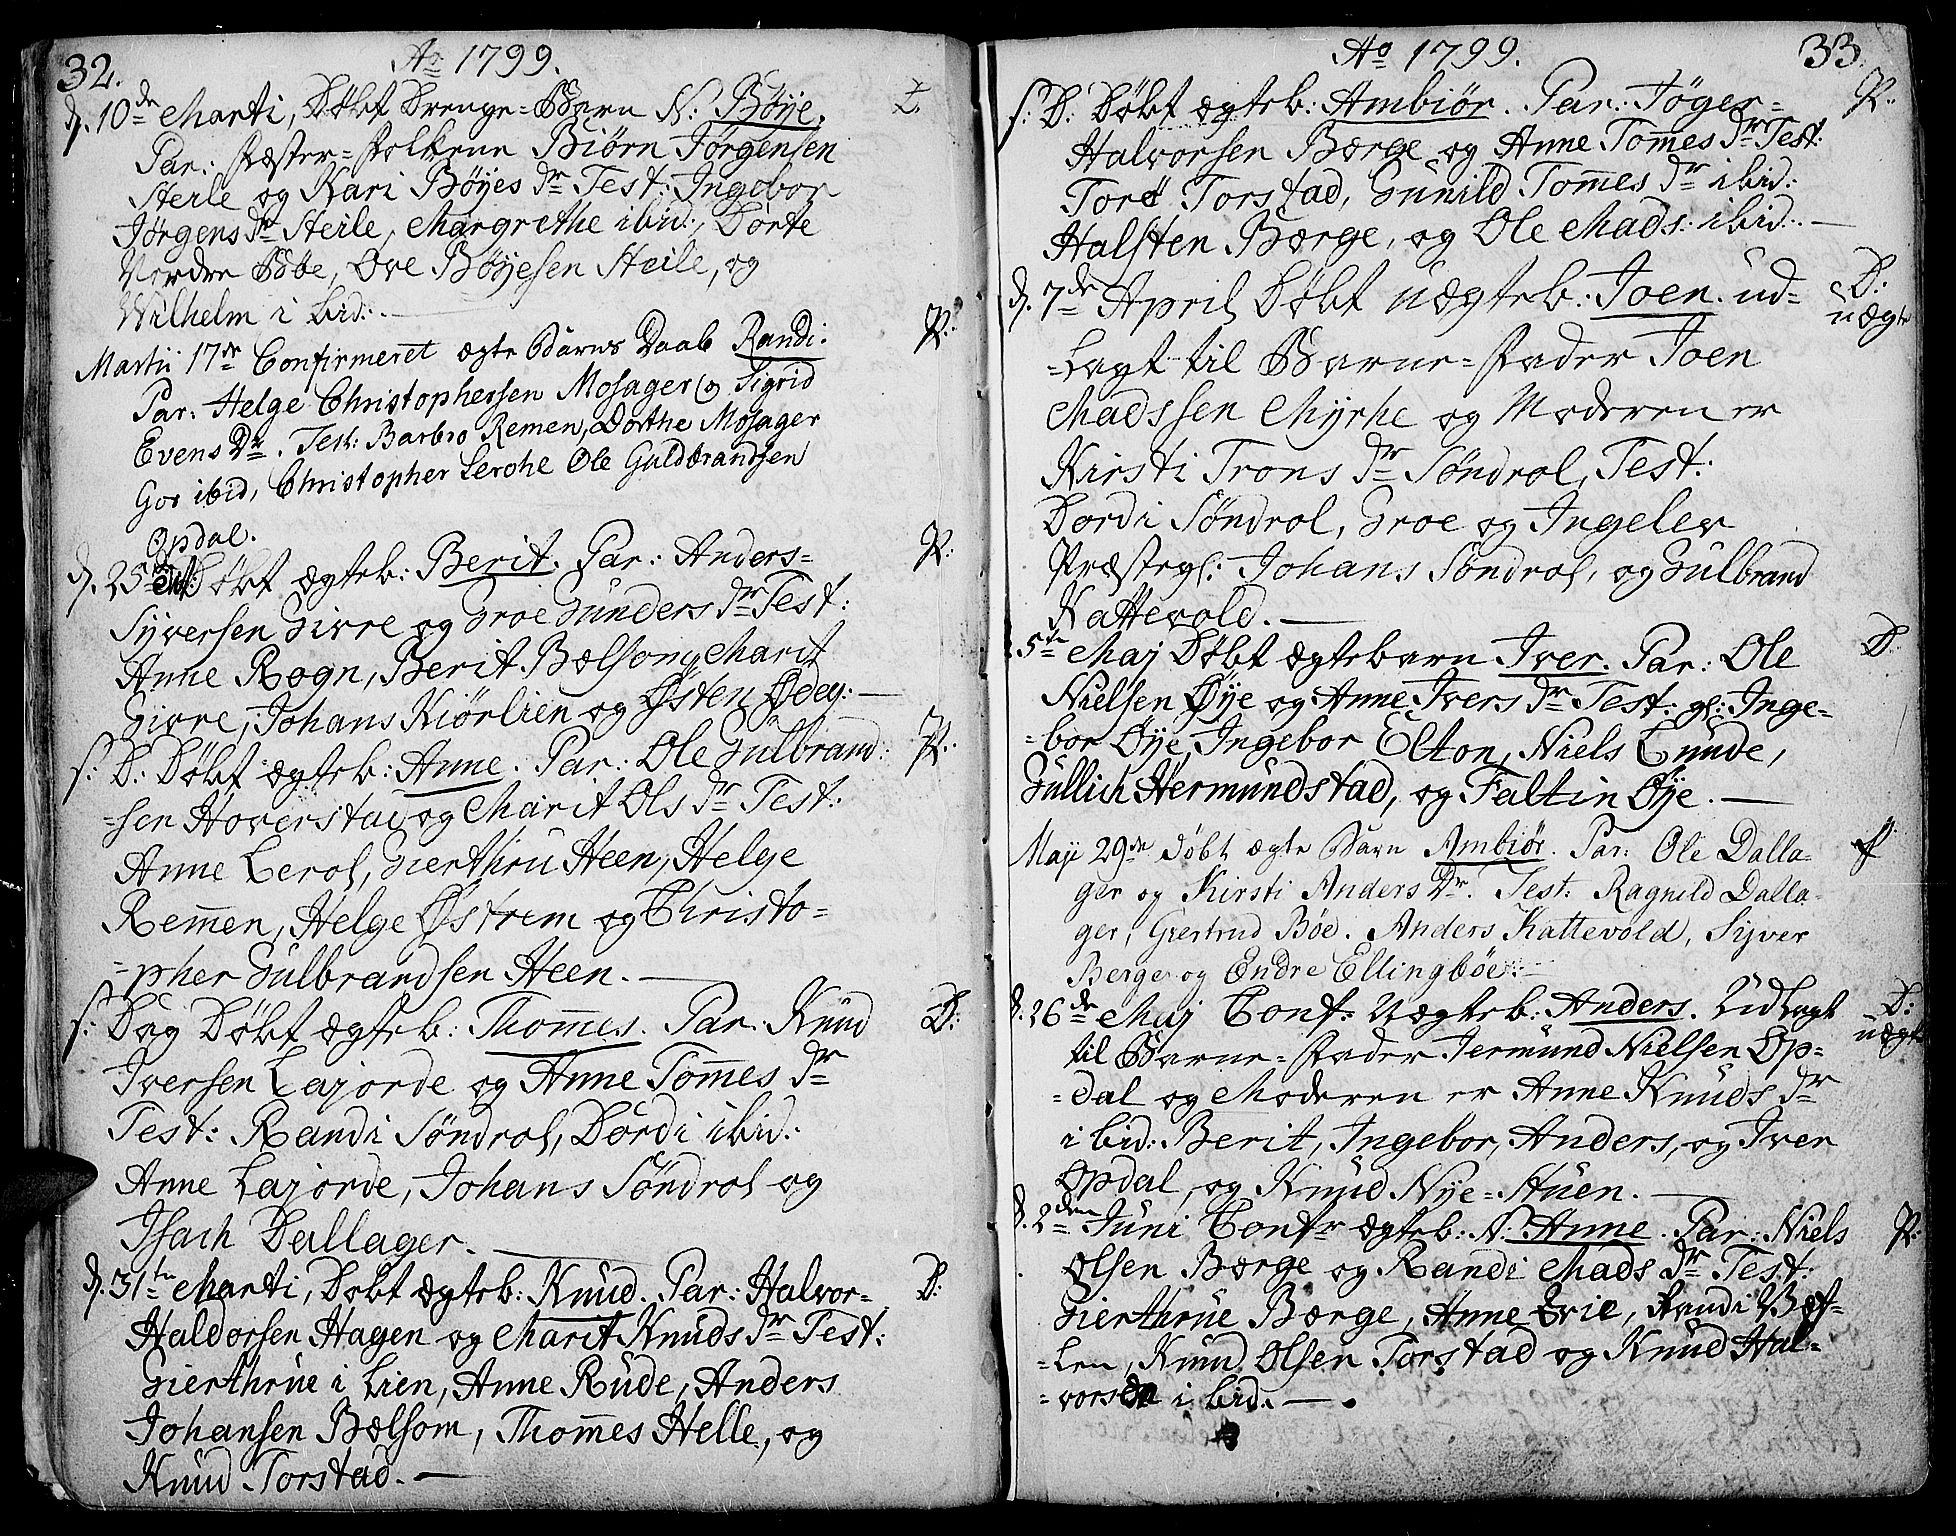 32.
Ao 1799.
d. 10de Marti, Døbt Drenge-Barn N: Bøye.
Par: Fæster-Folkene Biørn Jørgensen
Steile og Kari Bøyes Dr Test: Ingebor
Jørgens Dr Steile, Margrethe ibid:, Dorte
Nordre Bøe, Ove Bøyesen Steile, og
Wilhelm ibid:.
Martii 17de Confirmeret ægte Barns Daab Randi: P:
Par: Helge Christophersen Mosager og Sigrid
Evens Dr. Test: Barbro Remen, Dorthe Mosager
Gos ibid, Christopher Lerohe Ole Guldbrandsen
Opdal.
d. 25de Døbt ægteb: Berit. Par: Anders- P:
Syversen Girre og Groe Gunders Dr Test:
Anne Rogn, Berit Bælsom, Marit
Girre, Johans Kiørlien og Østen Ødeg: —
s: D: Døbt ægteb: Anne. Par: Ole Gulbrand: P:
=sen Hoverstad og Marit Ols Dr Test:
Anne Lerol, Gierthru Heen, Helge
Remen, Helge Østrem og Christo=
=pher Gulbrandsen Heen. —
s: Dag Døbt ægteb: Thommes. Par: Knud D:
Iversen Lajorde og Anne Tommes Dr
Test: Randi Søndrol, Dordi ibid:
Anne Lajorde, Johans Søndrol og
Isach Dallager. —
d. 31te Marti, Døbt ægteb: Knud. Par: Halvor- D:
Haldorsen Hagen og Marit Knuds Dr Test:
Gierthrue i Lien, Anne Rude, Anders
Johansen Bælsom, Thommes Helle, og
Knud Torstad. —
Ao 1799.
33.
s: D: Døbt ægteb: Ambiør. Par: Jøger- P:
Halvorsen Børge og Anne Tommes Dr Test:
Tore Torstad, Gunild Tommes Dr ibid:
Halsten Børge, og Ole Mads: ibid: —
d. 7de April Døbt uægteb: Joen. ud= D:
uægte
=lagt til Barne=Fader Joen
Madssen Myrhe og Moderen er
Kirsti Trons Dr Søndrol, Test:
Dordi Søndrol, Groe og Ingelev
Præstegl: Johans Søndrol, og Gulbrand
Kattevold. —
5te Maj Døbt ægtebarn Iver. Par: Ole D:
Nielsen Øye og Anne Ivers Dr Test: gl: Inge=
=bor Øye, Ingebor Elton, Niels Qunde,
Gullich Hermundstad, og Faltin Øye. —
Maji 29de døbt ægte Barn Ambiør. Par: Ole Dalla-
ger og Kirsti Anders Dr. Test: Ragnild Dalla-
ger, Giertrud Bøe. Anders Kattevold, Syver
Berge og Endre Ellingbøe: —
d. 26de Maj Conf: uægteb: Anders. Udlagt D:
uægte
til Barne=Fader Jermund Nielsen Op=
=dal og Moderen er Anne Knuds Dr
ibid: Berit, Ingebor, Anders, og Iver
Opdal, og Knud Nye=Stuen. —
d. 2den Juni Confr ægteb: N: Anne. Par: Niels P:
Olsen Børge og Randi Mads Dr Test:
Gierthrue Børge, Anne Qvie, Randi Wøf=
=len, Knud Olsen Torstad og Knud Hal=
=vorsen ibid. —.